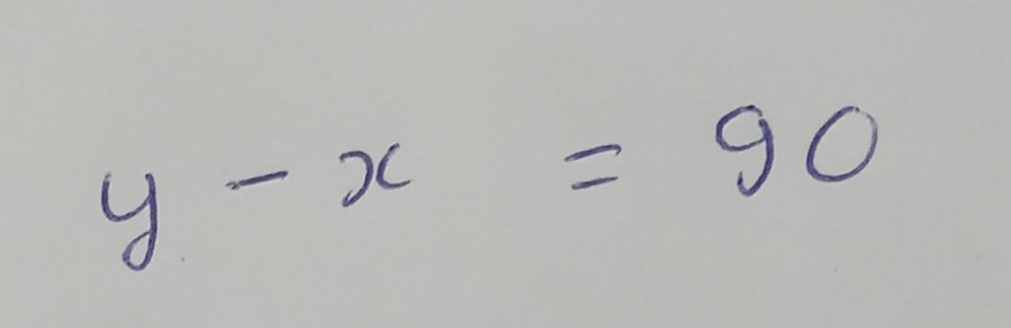 y - x = 90